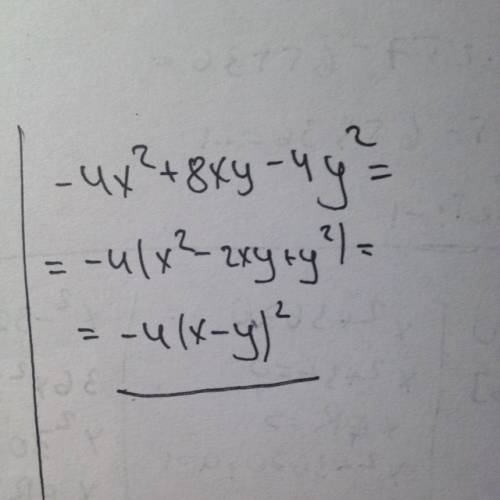 -4x²+8xy-4y²=
= -4(x²-2xy+y²)=
= -4(x-y)²